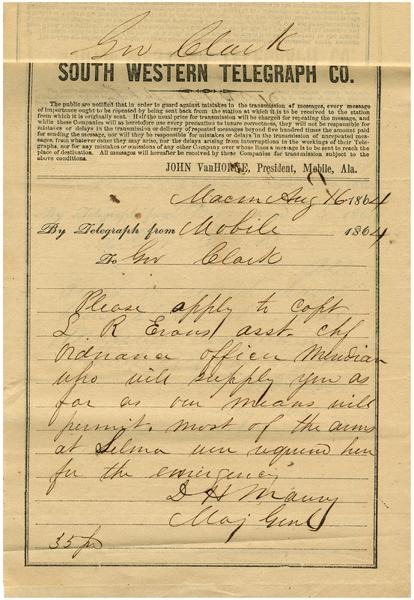 Gov Clark
SOUTH WESTERN TELEGRAPH CO.
The public are notified that in order to guard against mistakes in the transmission of messages, every message
of importance ought to be repeated by being sent back from the station at which it is to be received to the station
from which it is originally sent. Half the usual price for transmission will be charged for repeating the message, and
while these Companies will as heretofore use every precaution to insure correctness, they will not be responsible for
mistakes or delays in the transmission or delivery of repeated messages beyond five hundred times the amount paid
for sending the message, nor will they be responsible for mistakes or delays in the transmission of unrepeated mes-
sages, from whatever cause they may arise, nor for delays arising from interruptions in the workings of their Tele-
graphs, nor for any mistakes or omissions of any other Company over whose lines a message is to be sent to reach the
place of destination. All messages will hereafter be received by these Companies for transmission, subject to the
above conditions.
JOHN VanHORNE, President, Mobile, Ala.
Macon Aug 16 1864
By Telegraph from Mobile 1864
To Gov Clark
Please apply to capt
L R Evans asst. chf
Ordnance officer Meridian
who will supply you as
far as our means will
permit. most of the arms
at Selma were required here
for the emergency
D H Maury
Maj Genl
35 pd